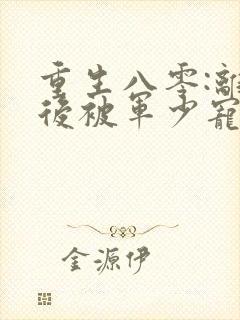 重生八零:離
後被軍少寵
金源伊